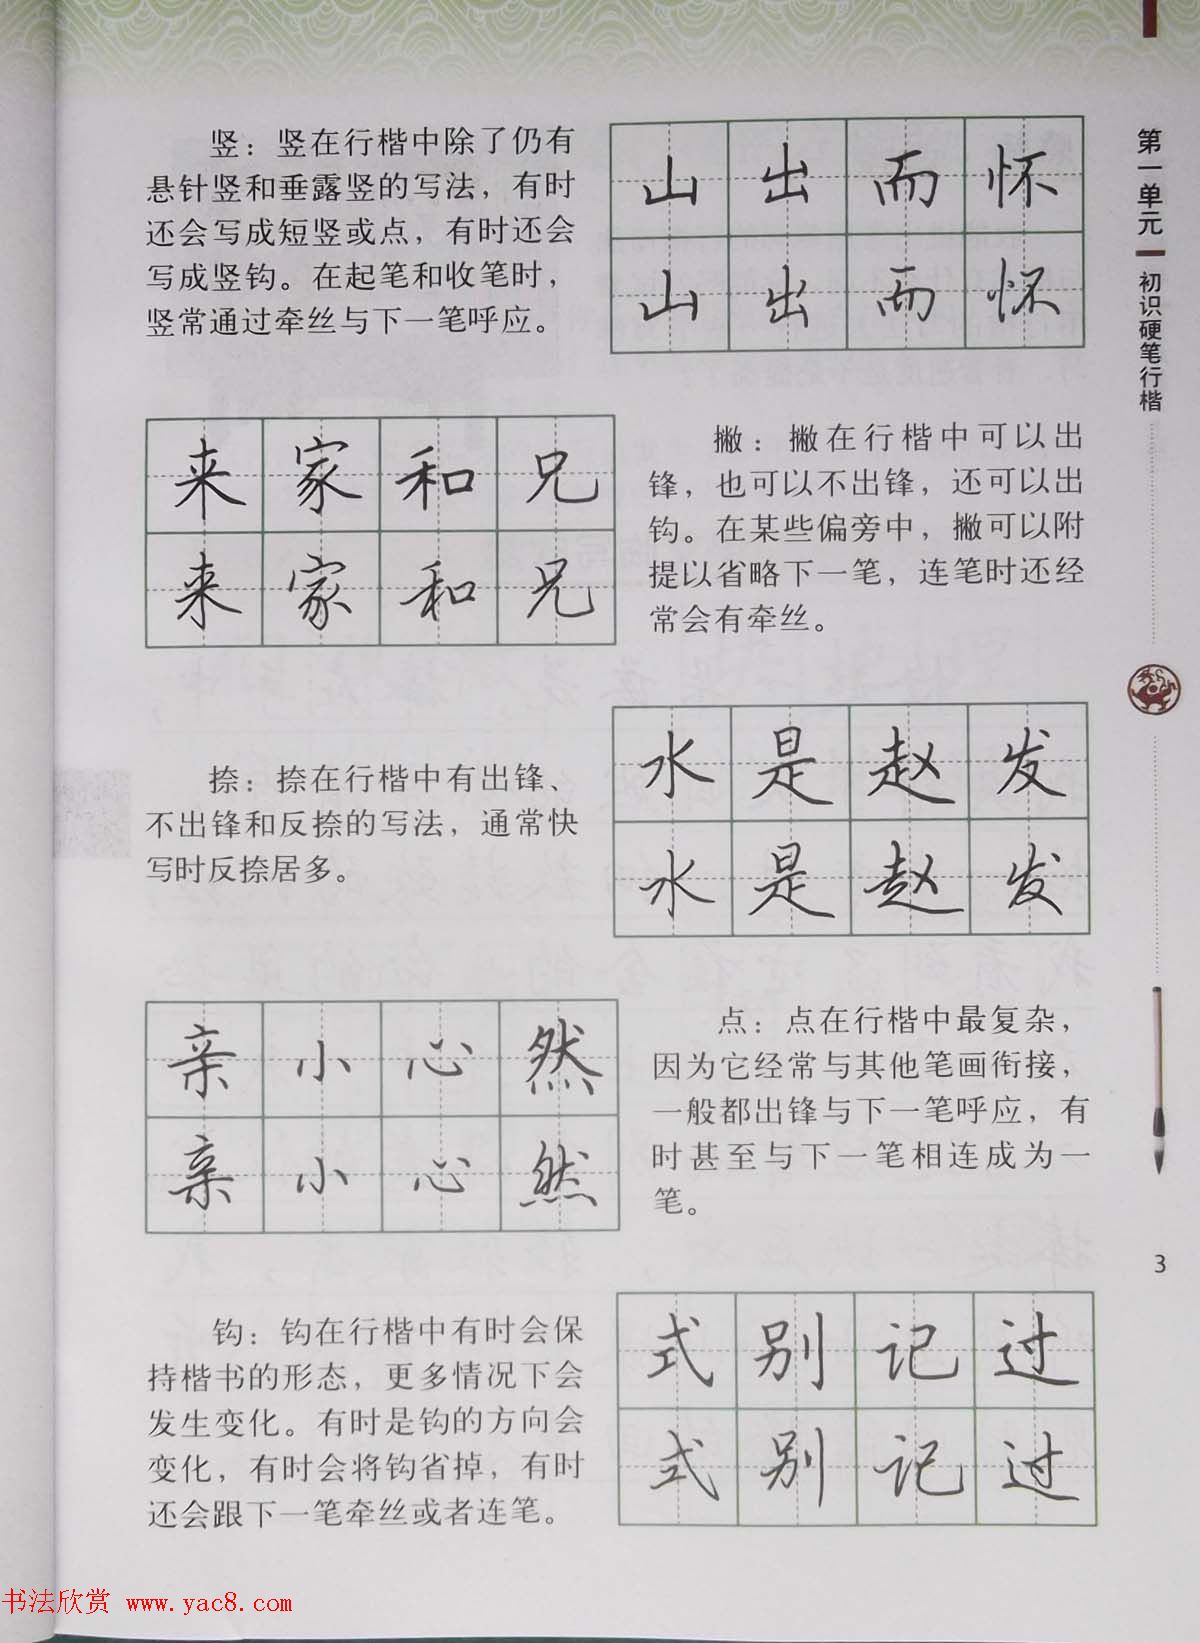 竖：竖在行楷中除了仍有
悬针竖和垂露竖的写法，有时
还会写成短竖或点，有时还会
写成竖钩。在起笔和收笔时，
竖常通过牵丝与下一笔呼应。
山 出 而 怀
山 出 而 怀
来 家 和 兄
来 家 和 兄
撇：撇在行楷中可以出
锋，也可以不出锋，还可以出
钩。在某些偏旁中，撇可以附
提以省略下一笔，连笔时还经
常会有牵丝。
捺：捺在行楷中有出锋、
不出锋和反捺的写法，通常快
写时反捺居多。
水 是 赵 发
水 是 赵 发
亲 小 心 然
亲 小 心 然
点：点在行楷中最复杂，
因为它经常与其他笔画衔接，
一般都出锋与下一笔呼应，有
时甚至与下一笔相连成为一
笔。
钩：钩在行楷中有时会保
持楷书的形态，更多情况下会
发生变化。有时是钩的方向会
变化，有时会将钩省掉，有时
还会跟下一笔牵丝或者连笔。
式 别 记 过
式 别 记 过
第一单元
初识硬笔行楷
3
书法欣赏 www.yac8.com